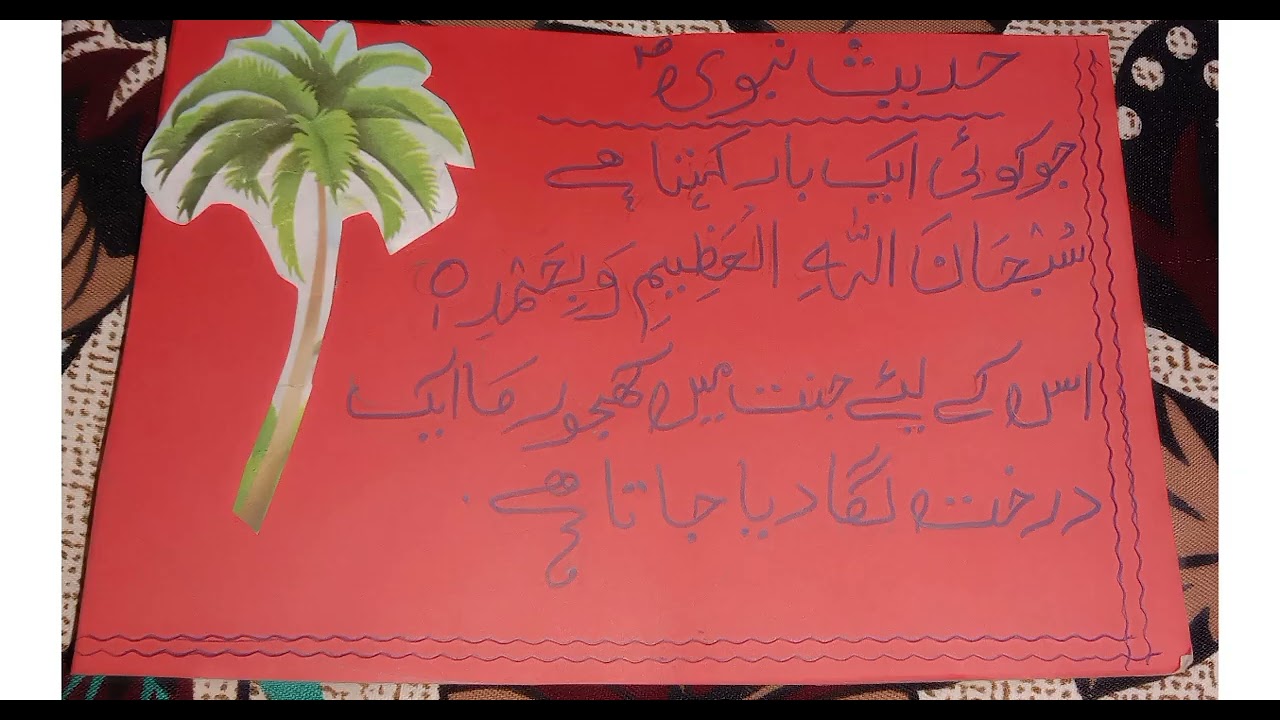 حدیث نبوی ؐ
جو کوئی ایک بار کہتا ہے
سُبْحَانَ اللّٰهِ الْعَظِيمِ وَبِحَمْدِهٖ
اس کے لیئے جنت میں کھجور کا ایک
درخت لگا دیا جاتا ھے.